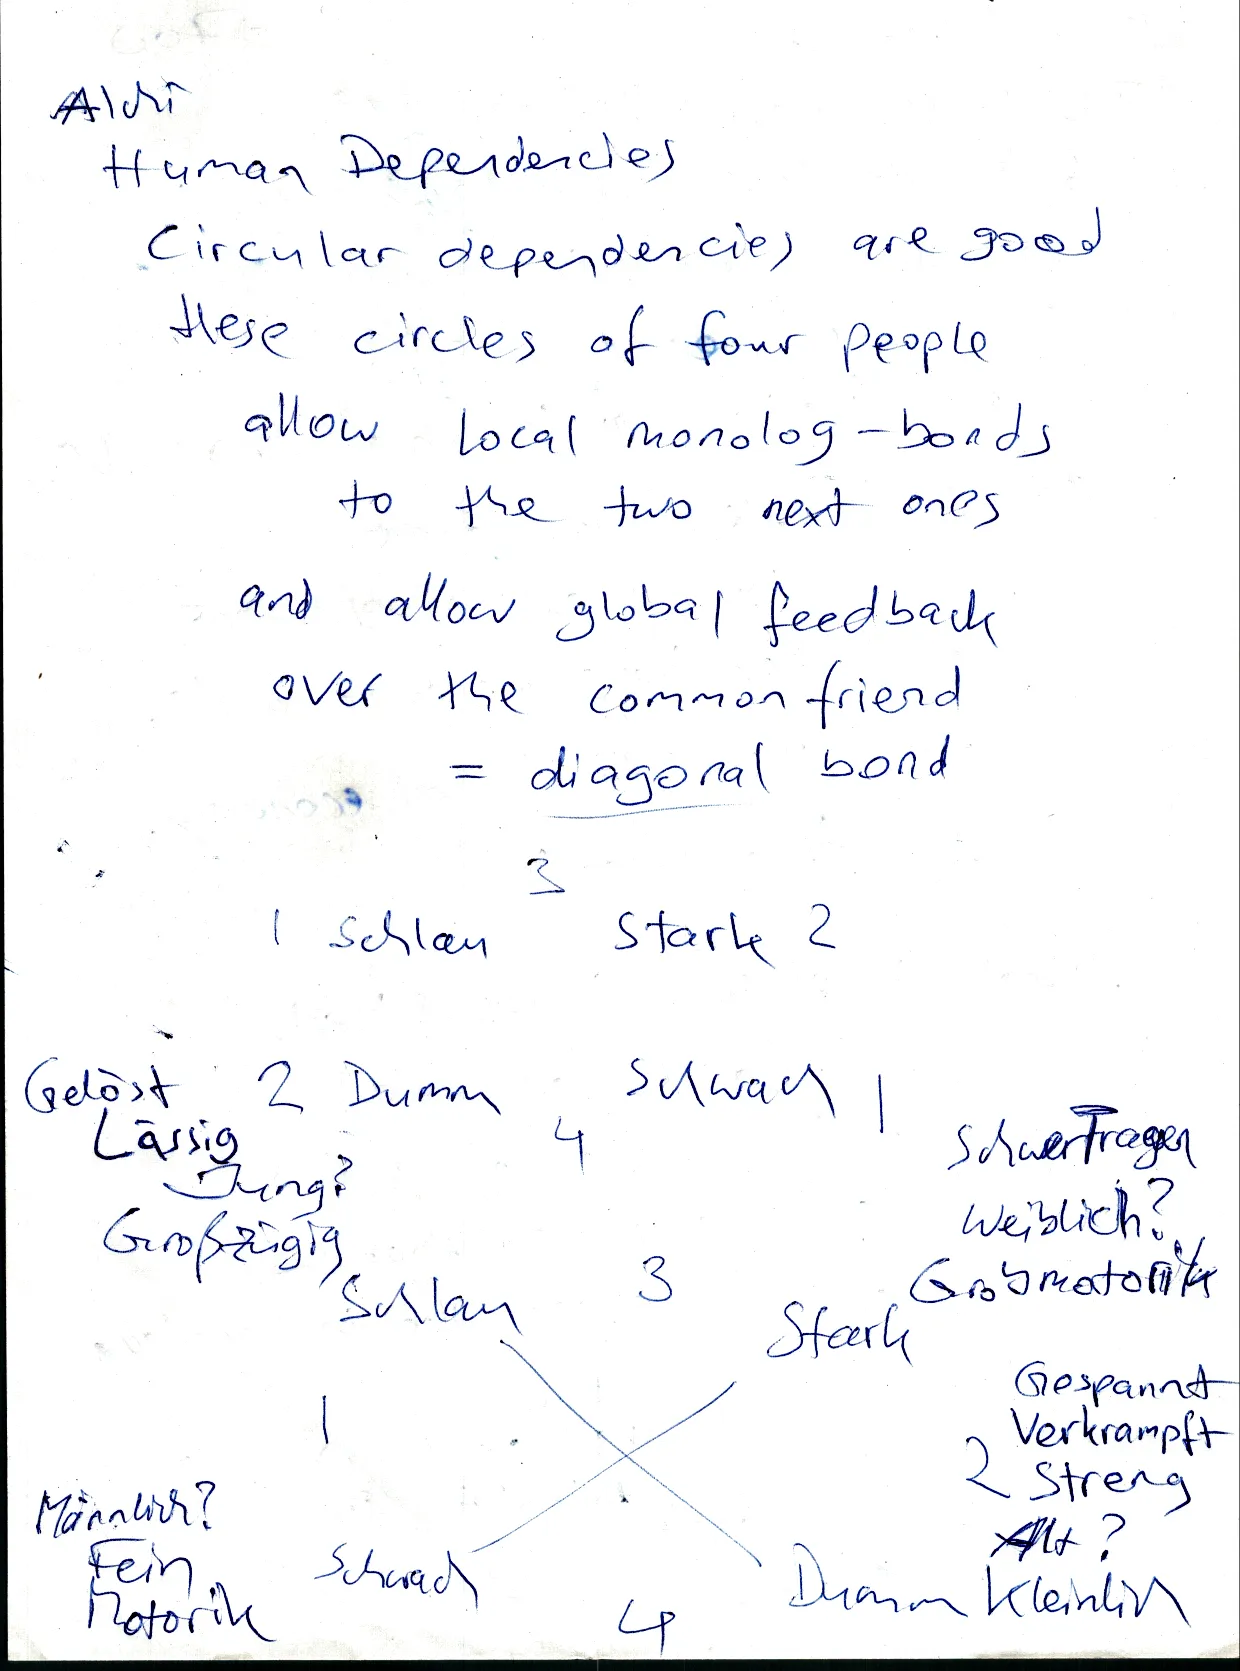 Alchi
Human Dependencies
Circular dependencies are good
these circles of four people
allow local monolog-bonds
to the two next ones
and allow global feedback
over the common friend
= diagonal bond
3
1 Schlau Stark 2
Gelöst 2 Dumm Schwach 1
Lässig 4 Schwer Tragen
Jung? Weiblich?
Großzügig 3 Grobmotorik
Schlau Stark
Gespannt
1 Verkrampft
2 Streng
Männlich? Alt?
Fein Schwach Dumm Kleinlich
Motorik 4